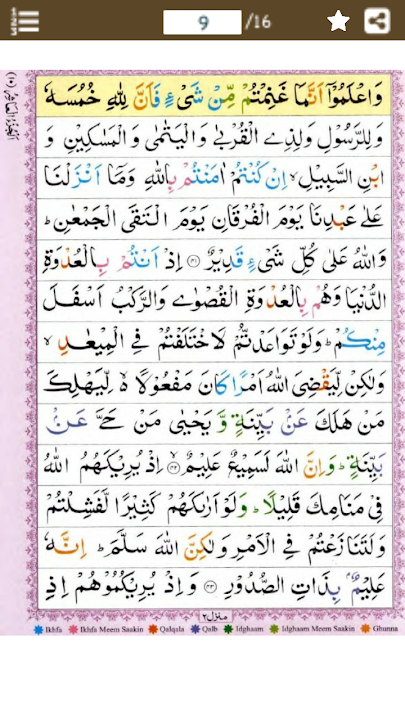 9 /16
وَاعْلَمُوْۤا اَنَّمَا غَنِمْتُمْ مِّنْ شَیْءٍ فَاَنَّ لِلّٰهِ خُمُسَهٗ
وَلِلرَّسُوْلِ وَلِذِی الْقُرْبٰی وَالْیَتٰمٰی وَالْمَسٰكِیْنِ وَ
ابْنِ السَّبِیْلِ ۙ اِنْ كُنْتُمْ اٰمَنْتُمْ بِاللّٰهِ وَمَاۤ اَنْزَلْنَا
عَلٰی عَبْدِنَا یَوْمَ الْفُرْقَانِ یَوْمَ الْتَقَی الْجَمْعٰنِ ؕ
وَاللّٰهُ عَلٰی كُلِّ شَیْءٍ قَدِیْرٌ ﴿۴۱﴾ اِذْ اَنْتُمْ بِالْعُدْوَةِ
الدُّنْیَا وَهُمْ بِالْعُدْوَةِ الْقُصْوٰی وَالرَّكْبُ اَسْفَلَ
مِنْكُمْ ؕ وَلَوْ تَوَاعَدْتُّمْ لَاخْتَلَفْتُمْ فِی الْمِیْعٰدِ ۙ
وَلٰكِنْ لِّیَقْضِیَ اللّٰهُ اَمْرًا كَانَ مَفْعُوْلًا ۙ۬ لِّیَهْلِكَ
مَنْ هَلَكَ عَنْۢ بَیِّنَةٍ وَّ یَحْیٰی مَنْ حَیَّ عَنْۢ
بَیِّنَةٍ ؕ وَاِنَّ اللّٰهَ لَسَمِیْعٌ عَلِیْمٌ ﴿۴۲﴾ اِذْ یُرِیْكَهُمُ اللّٰهُ
فِیْ مَنَامِكَ قَلِیْلًا ؕ وَلَوْ اَرٰىكَهُمْ كَثِیْرًا لَّفَشِلْتُمْ
وَلَتَنَازَعْتُمْ فِی الْاَمْرِ وَلٰكِنَّ اللّٰهَ سَلَّمَ ؕ اِنَّهٗ
عَلِیْمٌۢ بِذَاتِ الصُّدُوْرِ ﴿۴۳﴾ وَاِذْ یُرِیْكُمُوْهُمْ اِذِ
منزل ۲
Ikhfa Ikhfa Meem Saakin Qalqala Qalb Idghaam Idghaam Meem Saakin Ghunna